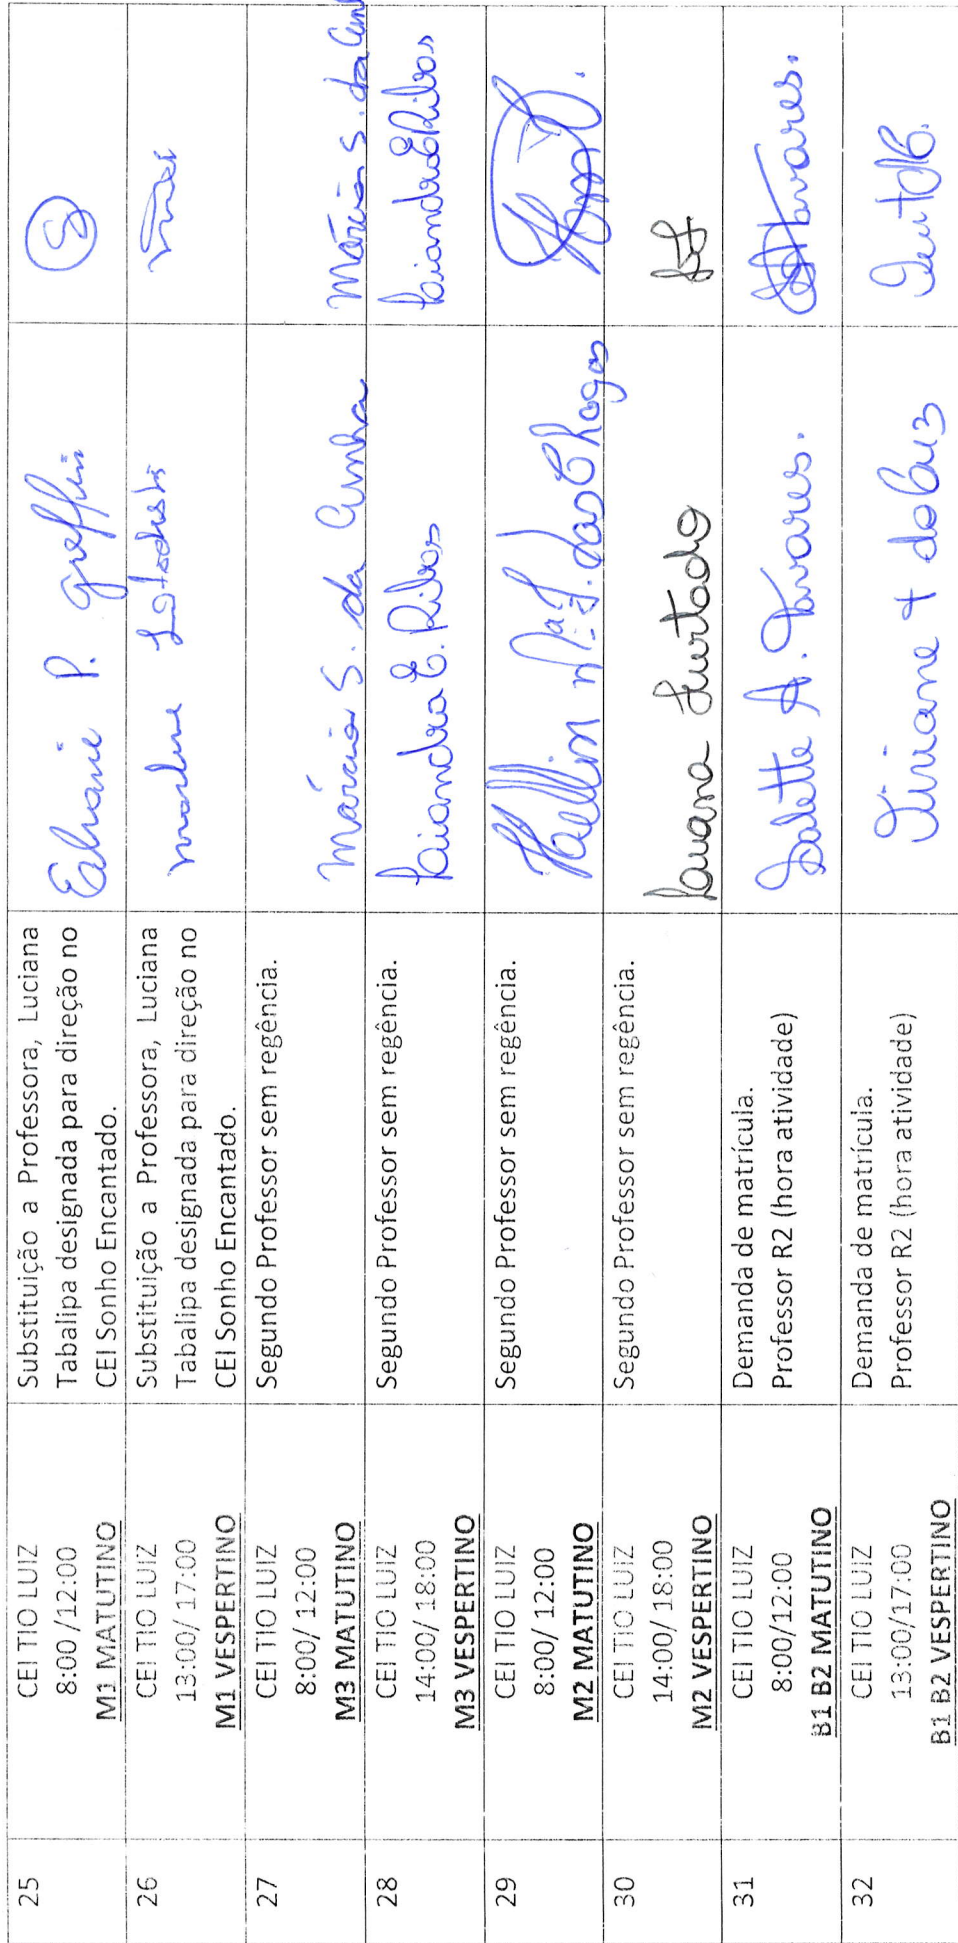 25
CEI TIO LUIZ
8:00 /12:00
M1 MATUTINO
Substituição a Professora, Luciana
Tabalipa designada para direção no
CEI Sonho Encantado.
P.
26
CEI TIO LUIZ
13:00/ 17:00
M1 VESPERTINO
Substituição a Professora, Luciana
Tabalipa designada para direção no
CEI Sonho Encantado.
27
CEI TIO LUIZ
8:00/ 12:00
M3 MATUTINO
Segundo Professor sem regência.
Márcia S. da Cunha
Márcia S. da
28
CEI TIO LUIZ
14:00/ 18:00
M3 VESPERTINO
Segundo Professor sem regência.
29
CEI TIO LUIZ
8:00/ 12:00
M2 MATUTINO
Segundo Professor sem regência.
das Chagas
30
CEI TIO LUIZ
14:00/ 18:00
M2 VESPERTINO
Segundo Professor sem regência.
Luana Furtado
31
CEI TIO LUIZ
8:00/12:00
B1 B2 MATUTINO
Demanda de matrícula.
Professor R2 (hora atividade)
Salette A. Tavares.
Tavares.
32
CEI TIO LUIZ
13:00/17:00
B1 B2 VESPERTINO
Demanda de matrícula.
Professor R2 (hora atividade)